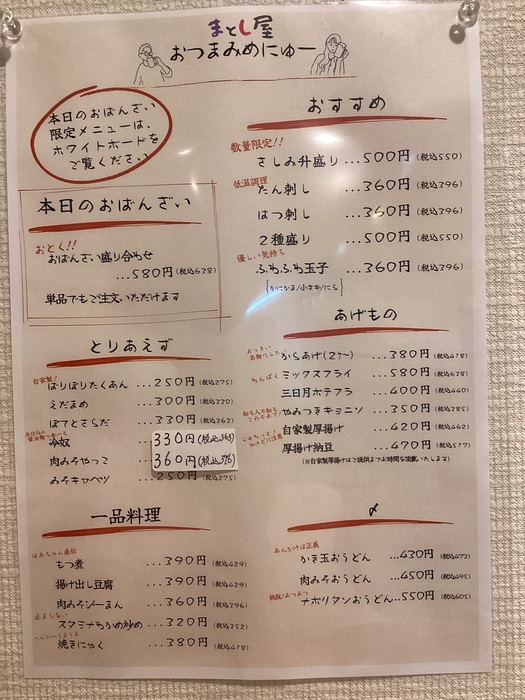 まとし屋
おつまみめにゅー
本日のおばんざい
限定メニューは、
ホワイトボードを
ご覧ください
本日のおばんざい
おとく!!
おばんざい盛り合わせ
...580円(税込638)
単品でもご注文いただけます
とりあえず
自家製!
ぽりぽりたくあん ...250円(税込275)
えだまめ ...300円(税込330)
ぽてとさらだ ...330円(税込363)
冷奴 330円(税込363)
肉みそやっこ 360円(税込396)
みそキャベツ ...250円(税込275)
一品料理
ばあちゃん直伝
もつ煮 ...390円(税込429)
揚げ出し豆腐 ...390円(税込429)
肉みそピーまん ...360円(税込396)
止まらない
スタミナわかめ炒め ...320円(税込352)
焼きにゃく ...380円(税込418)
おすすめ
数量限定!!
さしみ升盛り ...500円(税込550)
低温調理
たん刺し ...360円(税込396)
はつ刺し ...360円(税込396)
2種盛り ...500円(税込550)
優しい気持ち
ふわふわ玉子 ...360円(税込396)
(かにかま/小ネギ/にら)
あげもの
からあげ(2ケ〜) ...380円(税込418)
わんぱく
ミックスフライ ...580円(税込638)
三日月ポテフラ ...400円(税込440)
やみつきキャニソ ...350円(税込385)
自家製厚揚げ ...420円(税込462)
厚揚げ納豆 ...470円(税込517)
(※自家製厚揚げはご提供までお時間を頂戴いたします)
〆
あんかけは正義
かき玉おうどん ...430円(税込473)
肉みそおうどん ...450円(税込495)
鉄板!あつあつ
ナポリタンおうどん...550円(税込605)